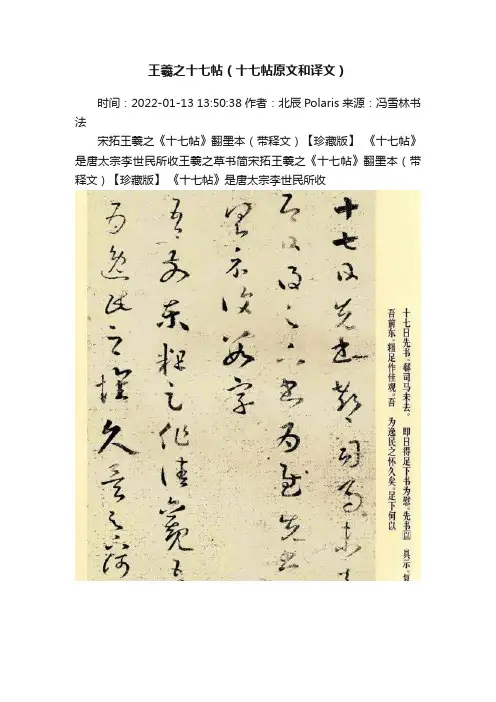 王羲之十七帖（十七帖原文和译文）
时间：2022-01-13 13:50:38 作者：北辰Polaris 来源：冯雪林书
法
宋拓王羲之《十七帖》翻墨本（带释文）【珍藏版】 《十七帖》
是唐太宗李世民所收王羲之草书简宋拓王羲之《十七帖》翻墨本（带
释文）【珍藏版】 《十七帖》是唐太宗李世民所收
十七日先書郗司馬未
即日得足下書為慰先書
以具示復數字
吾前東粗足作佳觀吾
為逸民之懷久矣足下何
十七日先书。郗司马未去。 即日得足下书为慰。先书 具示。复
吾前东。粗足作佳观。吾 为逸民之怀久矣。足下何以